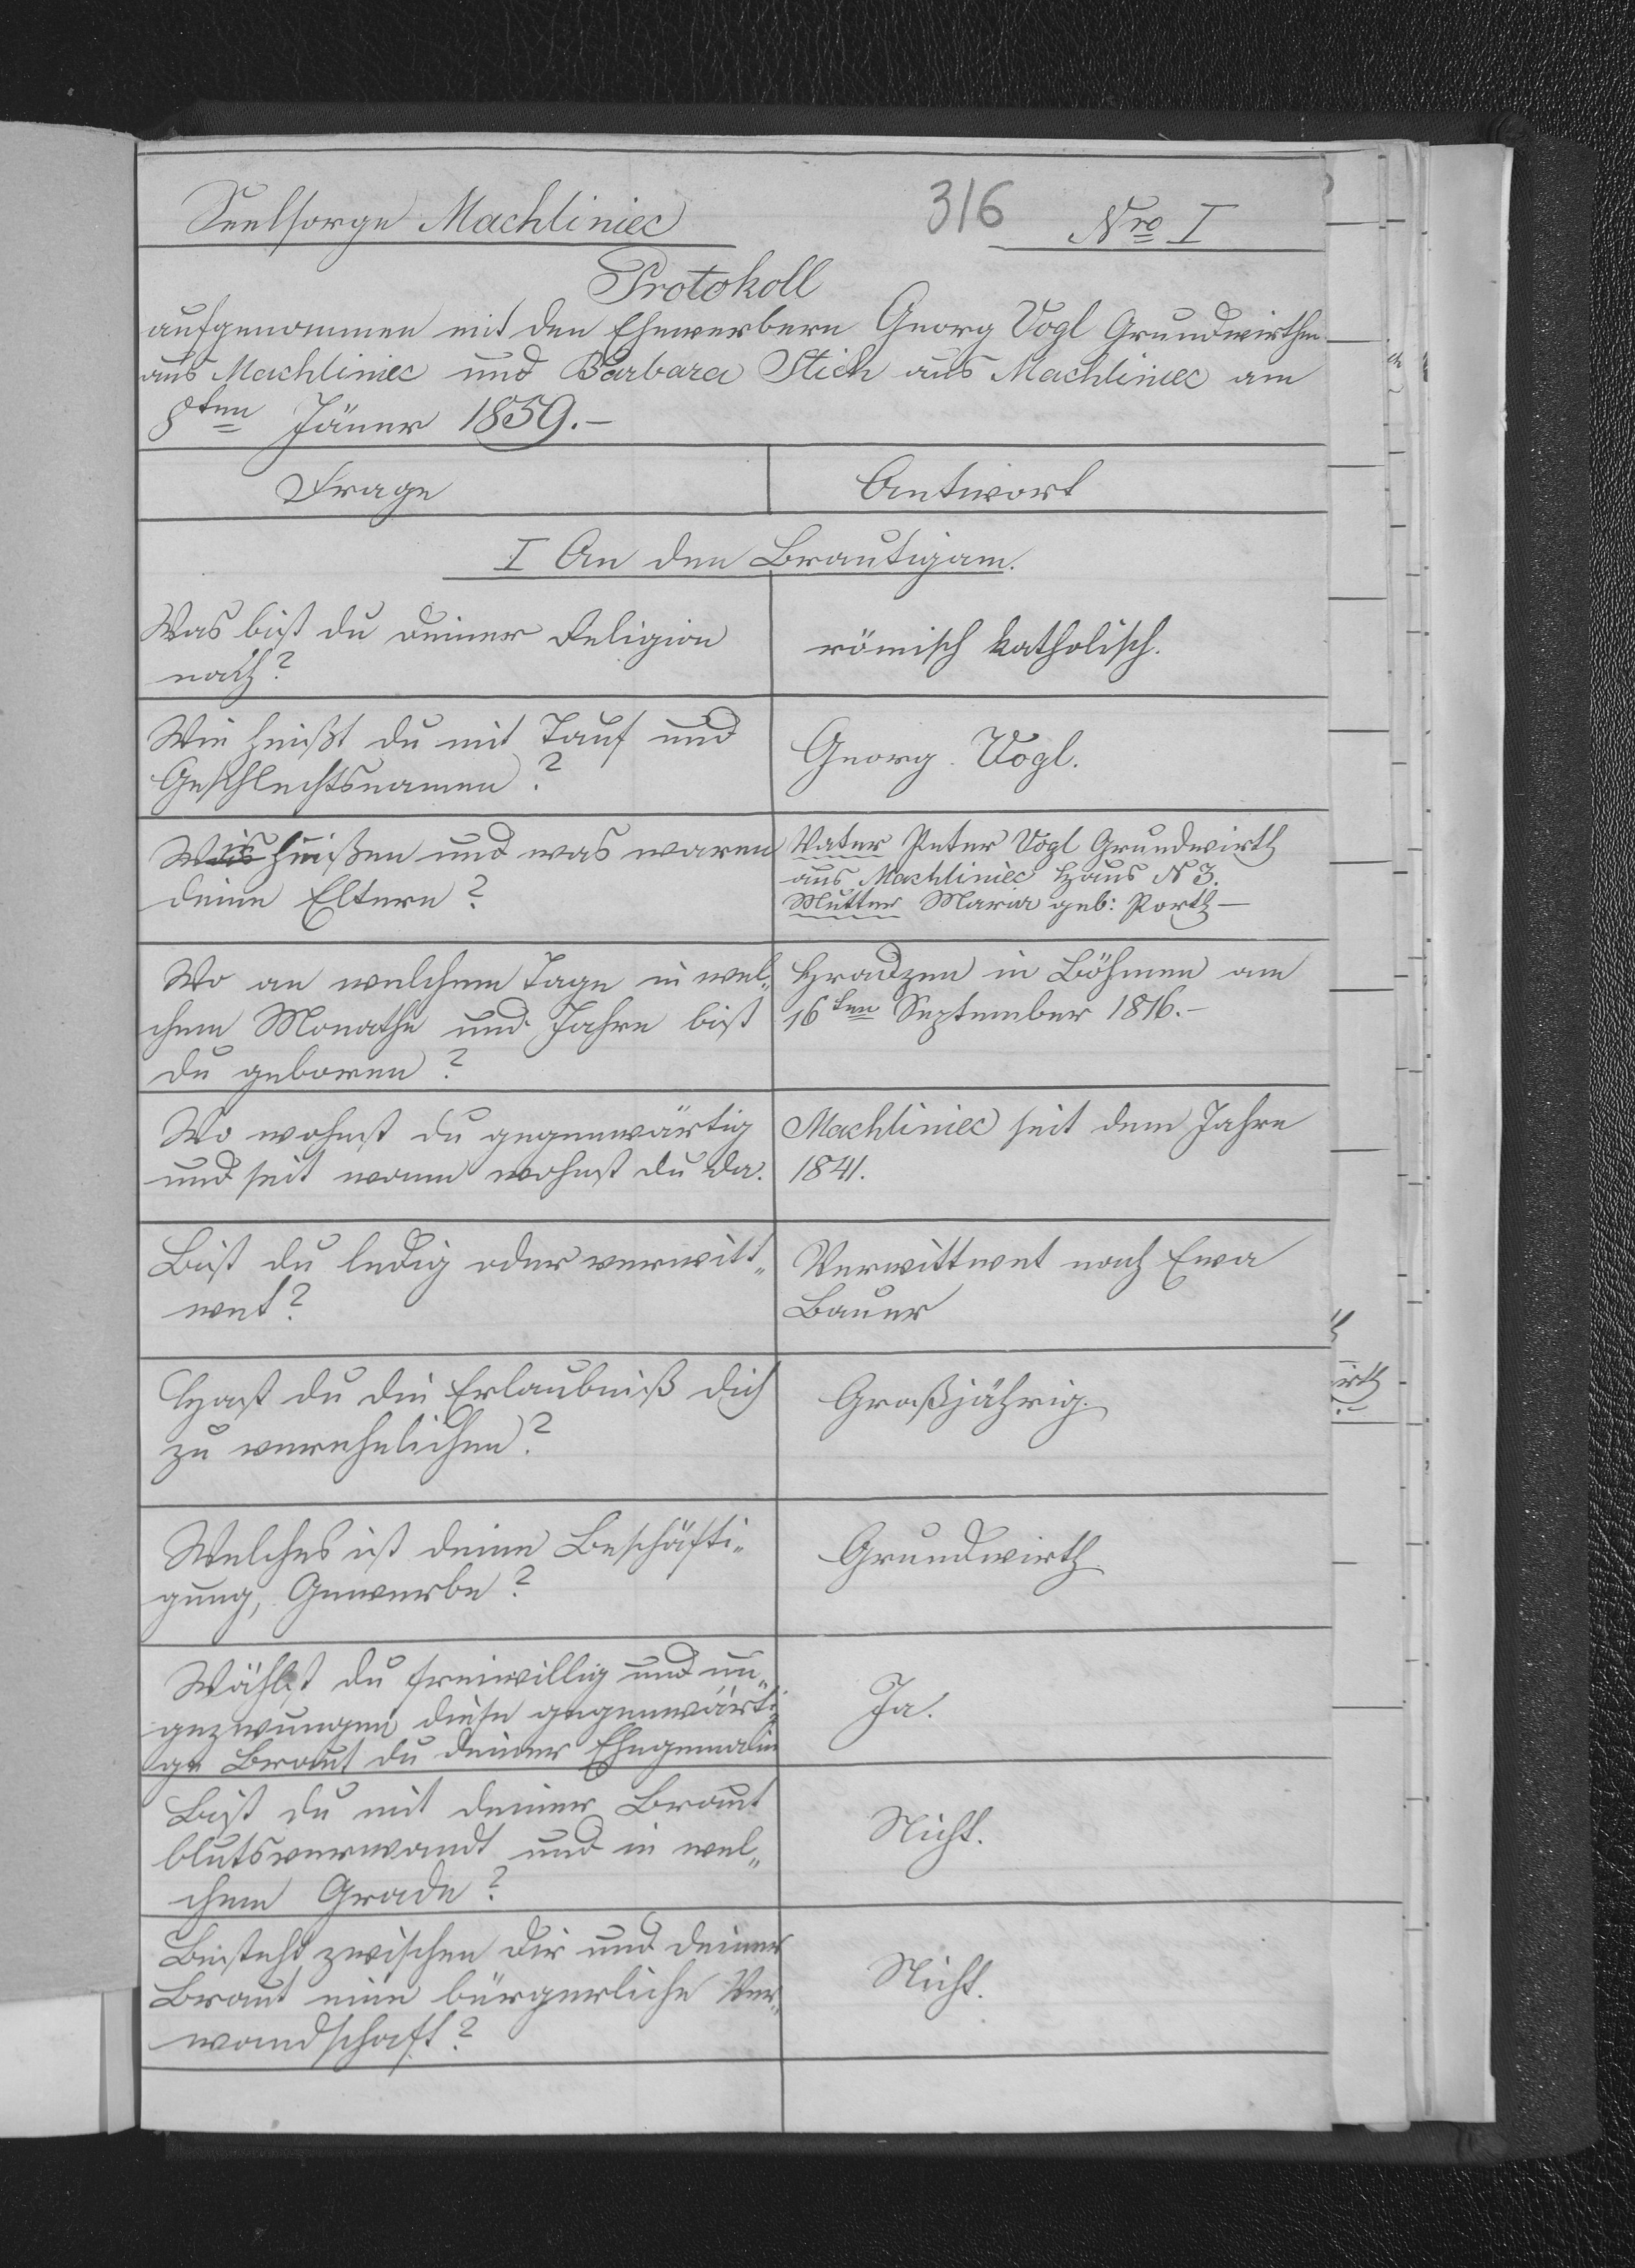 Seelsorge Machliniec
316
Nro I
Protokoll
aufgenommen mit den Ehewerbern Georg Vogl Grundwirthen
aus Machliniec und Barbara Stich aus Machliniec am
8ten Jäner 1859.-
Frage
Antwort
I An den Brautigam.
Was bist du deiner Religion
nach?
römisch katholisch.
Wie heißt du mit Tauf und
Geschlechtsnamen?
Georg Vogl.
Wie heißen und was waren
deine Eltern?
Vater Peter Vogl Grundwirth
aus Machliniec Haus N 3.
Mutter Maria geb: Porth-
Wo an welchem Tage in wel„
chem Monathe und Jahre bist
du geboren?
Hradzen in Böhmen am
16ten September 1816.-
Wo wohnst du gegenwärtig
und seit wann wohnst du da.
Machliniec seit dem Jahre
1841.
Bist du ledig oder verwitt„
wet?
Verwittwet nach Ewa
Bauer
Hast du die Erlaubniß dich
zu verehelichen?
Großjährig.
Welches ist deine Beschäfti„
gung, Gewerbe?
Grundwirth.
Wählst du freiwillig und un„
gezwungen diese gegenwärti„
ge Braut du deiner Ehegemalin
Ja.
Bist du mit deiner Braut
blutsverwandt und in wel„
chem Grade?
Nicht.
Besteht zwischen dir und deiner
Braut eine bürgerliche Ver„
wandschaft?
Nicht.